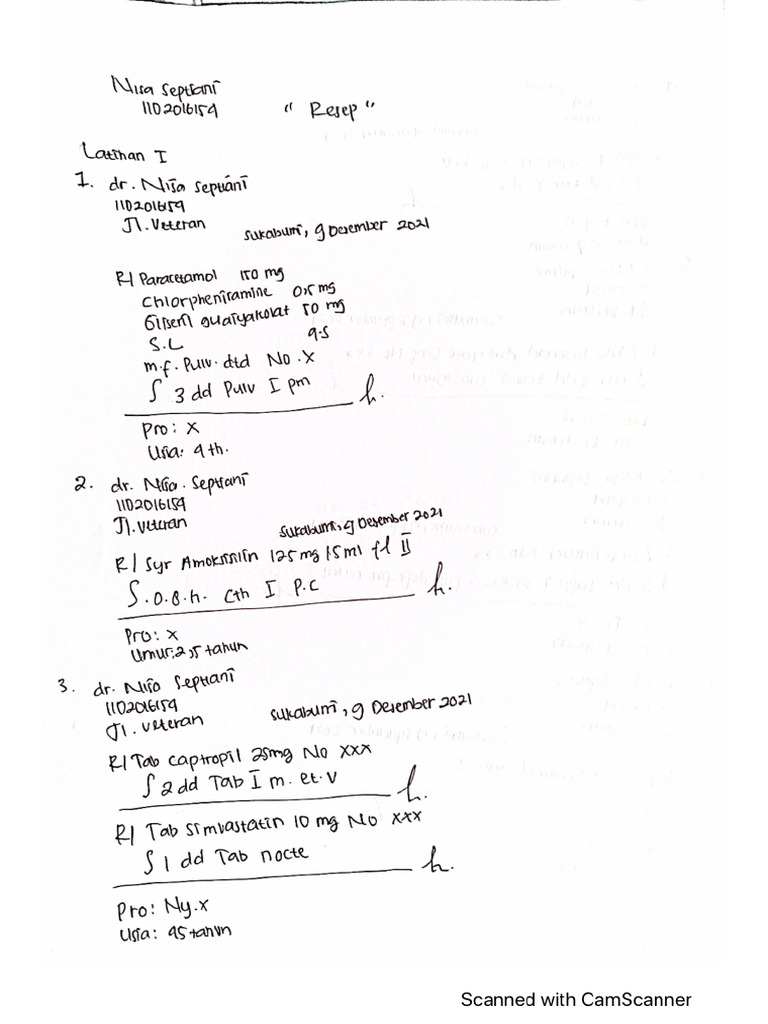 Nisa Septiani
1102016159
"Resep"
Latihan I
1. dr. Nisa Septiani
1102016159
Jl. Veteran
Sukabumi, 9 Desember 2021
R/ Paracetamol 150 mg
Chlorpheniramine 0,5 mg
Gliseril guaiyakolat 50 mg
S.L q.s
m.f. Pulv. dtd No. X
S 3 dd Pulv I pm
Pro: X
Usia: 4 th.
2. dr. Nisa. Septiani
1102016159
Jl. Veteran
Sukabumi, 9 Desember 2021
R/ Syr Amoksisilin 125 mg/5ml fl II
S.o.8.h. Cth I P.C
Pro: X
Umur: 2,5 tahun
3. dr. Nisa Septiani
1102016159
Jl. Veteran
Sukabumi, 9 Desember 2021
R/ Tab captropil 25mg No XXX
S 2 dd Tab I m. et. v
R/ Tab simvastatin 10 mg No XXX
S 1 dd Tab nocte
Pro: Ny. x
Usia: 45 tahun
Scanned with CamScanner